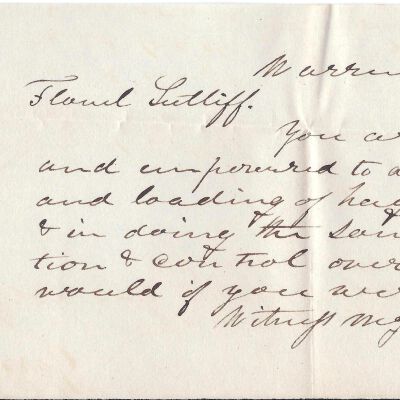 Warren
Flavel Sutliff.
You a
and empowered to a
and loading of
& in doing the sam
tion & control over
would if you wer
Witness my